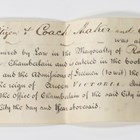 Citizen & Coach Maker and
was
quired by Law in the Mayoralty of R
Chamberlain and is entered in the book
and the Admission of Freemen (to wit) the
reign of Queen VICTORIA And
Office of Chamberlain of the said City is
City the day and Year abovesaid.